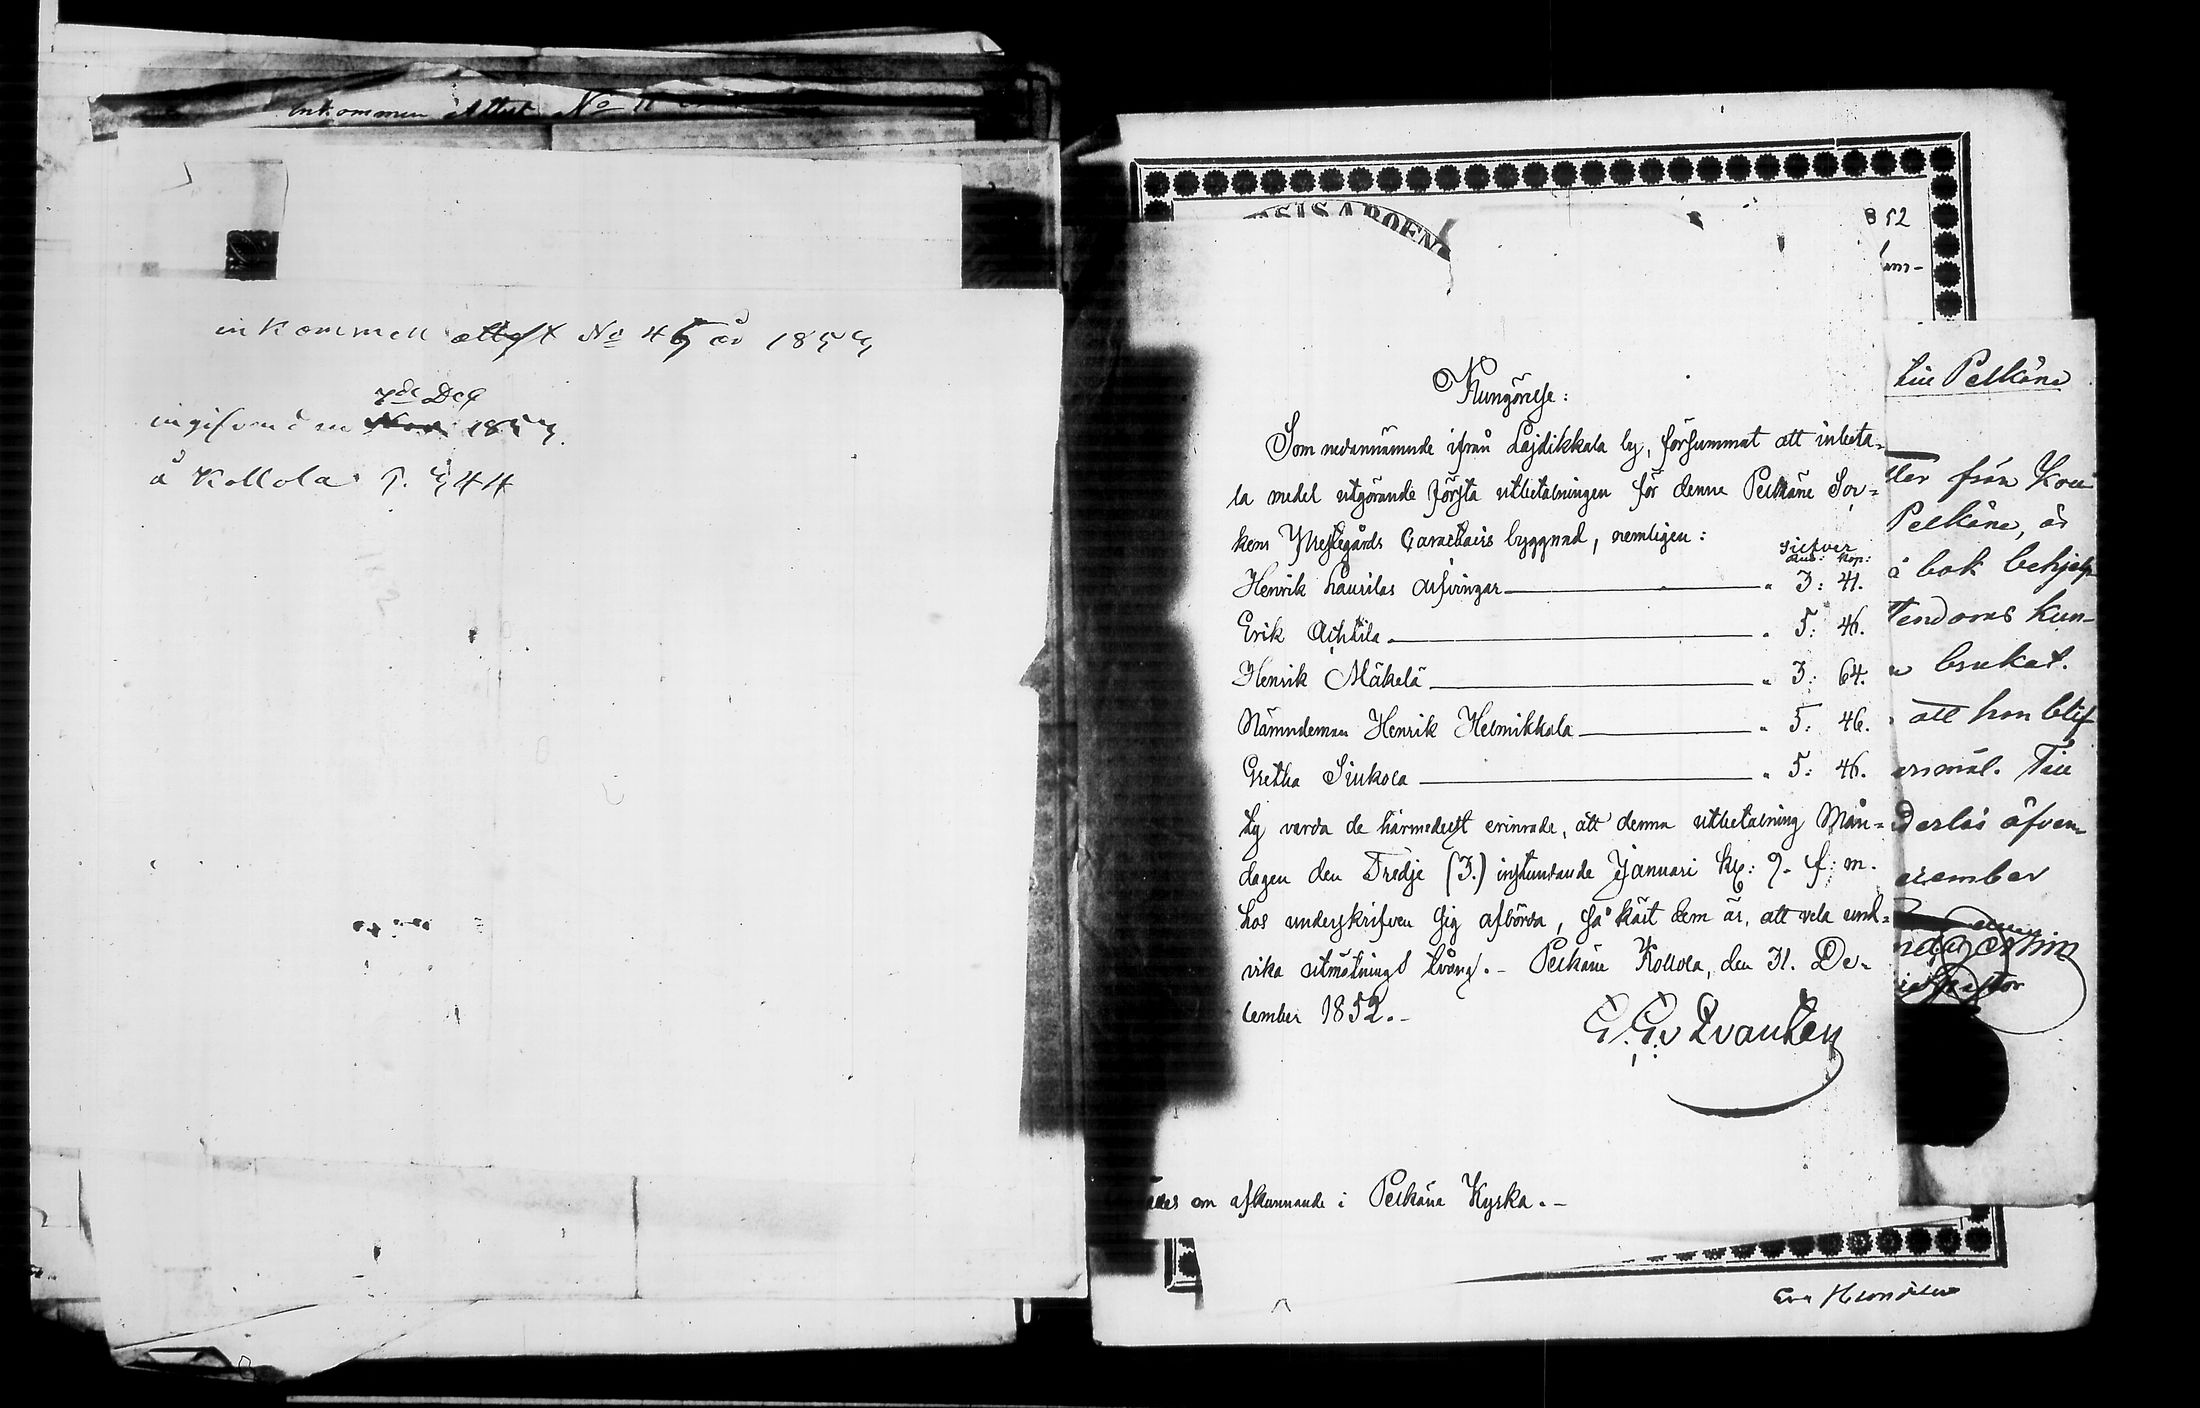 inkommen Attest No 11
inkommen attest No 45 år 1852
7de Dec
ingifven den Nov. 1852.
å Kollola
Kungörelse:
Som nedannämnde ifrån Lajdikkala by, försummat att inbeta-
la medel utgörande första utbetalningen för denne Pelkäne Soc-
kens Prestegårds Caractairs byggnad, nemligen:
Silfver
Rub: Kop:
Henrik Laurilas Arfvingar " 3: 41.
Erik Achtila " 5: 46.
Henrik Mäkelä " 3: 64.
Nämndeman Henrik Helmikkala " 5: 46.
Gretha Siukola " 5: 46.
Ty varda de härmedelst erinrade, att denna utbetalning Mån-
dagen den Tredje (3.) instundande Januari kl: 9. f: m.
hos underskrifven sig afbörda, så kärt dem är, att vela und-
vika utmätnings tvång. - Pelkäne Kollola, den 31. De-
cember 1852. -
G. G. v Qvanten
om afkunnande i Pelkäne Kyrka. -
852
till Pelkäne
från
Pelkäne, är
å bok behjelp
kun-
brukat.
att hon blif
ersmål. Till
äfven
cember